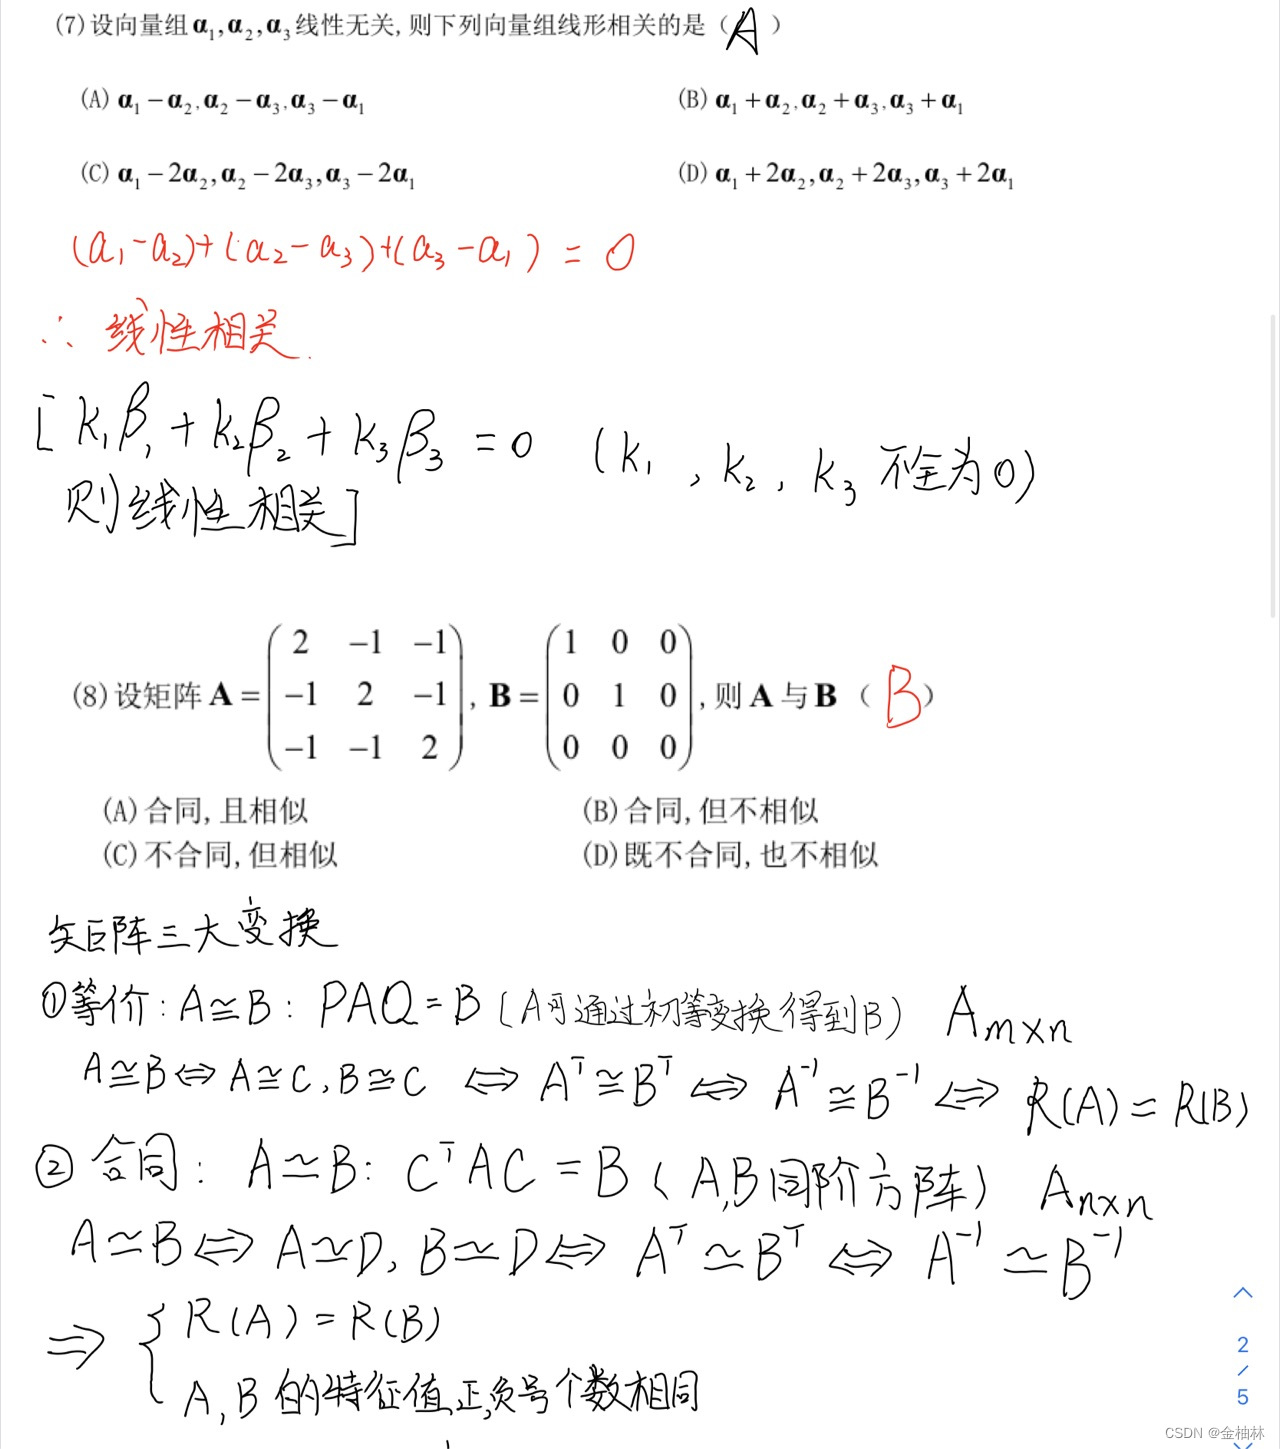 (7) 设向量组 α₁,α₂,α₃ 线性无关, 则下列向量组线形相关的是 ( A )
(A) α₁－α₂,α₂－α₃,α₃－α₁
(B) α₁＋α₂,α₂＋α₃,α₃＋α₁
(C) α₁－2α₂,α₂－2α₃,α₃－2α₁
(D) α₁＋2α₂,α₂＋2α₃,α₃＋2α₁
(α₁-α₂)+(α₂-α₃)+(α₃-α₁) = 0
∴ 线性相关.
[ k₁β₁ + k₂β₂ + k₃β₃ = 0 (k₁, k₂, k₃ 不全为0)
则线性相关]
(8) 设矩阵 A = ( 2 −1 −1 ; −1 2 −1 ; −1 −1 2 ), B = ( 1 0 0 ; 0 1 0 ; 0 0 0 ), 则 A 与 B ( B )
(A) 合同, 且相似
(B) 合同, 但不相似
(C) 不合同, 但相似
(D) 既不合同, 也不相似
矩阵三大变换
①等价: A≅B: PAQ=B (A可通过初等变换得到B) Am×n
A≅B⇔A≅C, B≅C ⇔ Aᵀ≅Bᵀ ⇔ A⁻¹≅B⁻¹ ⇔ R(A)=R(B)
② 合同: A≃B: CᵀAC=B (A,B同阶方阵) An×n
A≃B⇔A≃D, B≃D⇔ Aᵀ≃Bᵀ ⇔ A⁻¹≃B⁻¹
⇒ { R(A)=R(B)
A,B的特征值正,负号个数相同
2
/
5
CSDN @金柚林